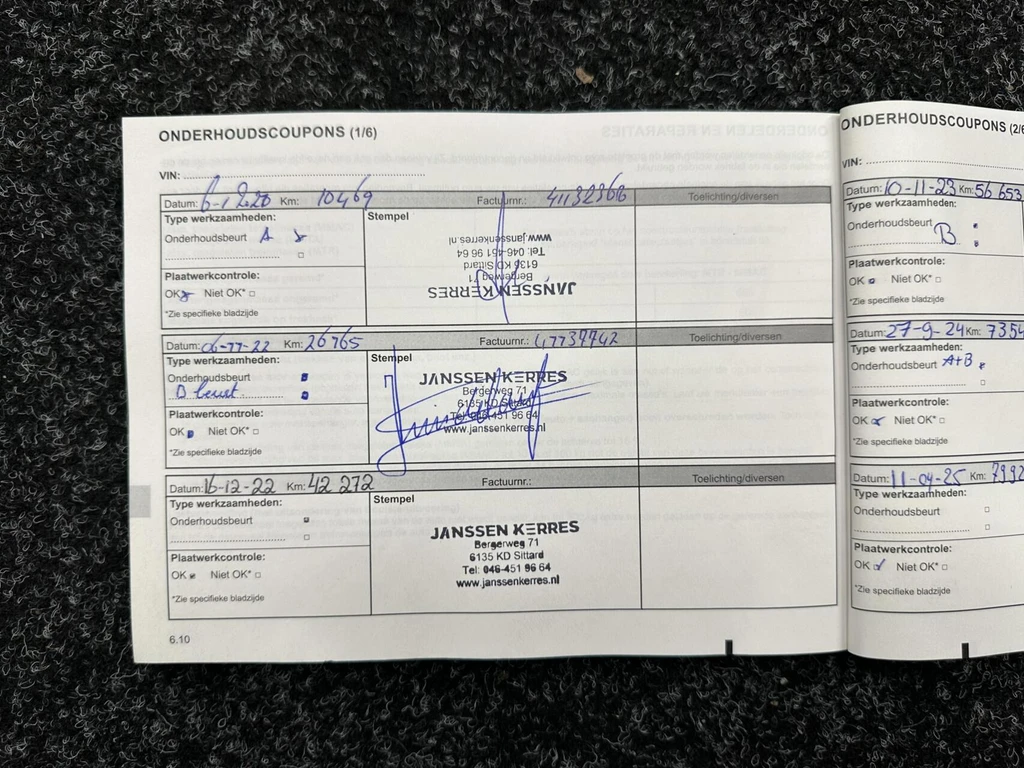 ONDERHOUDSCOUPONS (1/6)
VIN:
Datum: 6-1 2020 Km: 10469 Factuurnr.: Toelichting/diversen
Type werkzaamheden:
Onderhoudsbeurt A
Plaatwerkcontrole:
OK Niet OK*
*Zie specifieke bladzijde
Stempel
JANSSEN KERRES
Bergerweg 71
6136 KD Sittard
Tel. 046-451 96 64
www.janssenkerres.nl
Datum: Km: 26765 Factuurnr.: Toelichting/diversen
Type werkzaamheden:
Onderhoudsbeurt
beurt
Plaatwerkcontrole:
OK Niet OK*
*Zie specifieke bladzijde
Stempel
JANSSEN KERRES
Bergerweg 71
6135 KD Sittard
Tel: 046-451 96 64
www.janssenkerres.nl
Datum: 16-12-22 Km: 42 272 Factuurnr.: Toelichting/diversen
Type werkzaamheden:
Onderhoudsbeurt
Plaatwerkcontrole:
OK Niet OK*
*Zie specifieke bladzijde
Stempel
JANSSEN KERRES
Bergerweg 71
6135 KD Sittard
Tel: 046-451 96 64
www.janssenkerres.nl
6.10
ONDERHOUDSCOUPONS (2/6
VIN:
Datum: 10-11-23 Km: 56 653
Type werkzaamheden:
Onderhoudsbeurt
B
Plaatwerkcontrole:
OK Niet OK*
*Zie specifieke bladzijde
Datum: 27-9-24 Km: 7354
Type werkzaamheden:
Onderhoudsbeurt A+B
Plaatwerkcontrole:
OK Niet OK*
*Zie specifieke bladzijde
Datum: 11-04-25 Km: 7992
Type werkzaamheden:
Onderhoudsbeurt
Plaatwerkcontrole:
OK Niet OK*
*Zie specifieke bladzijde